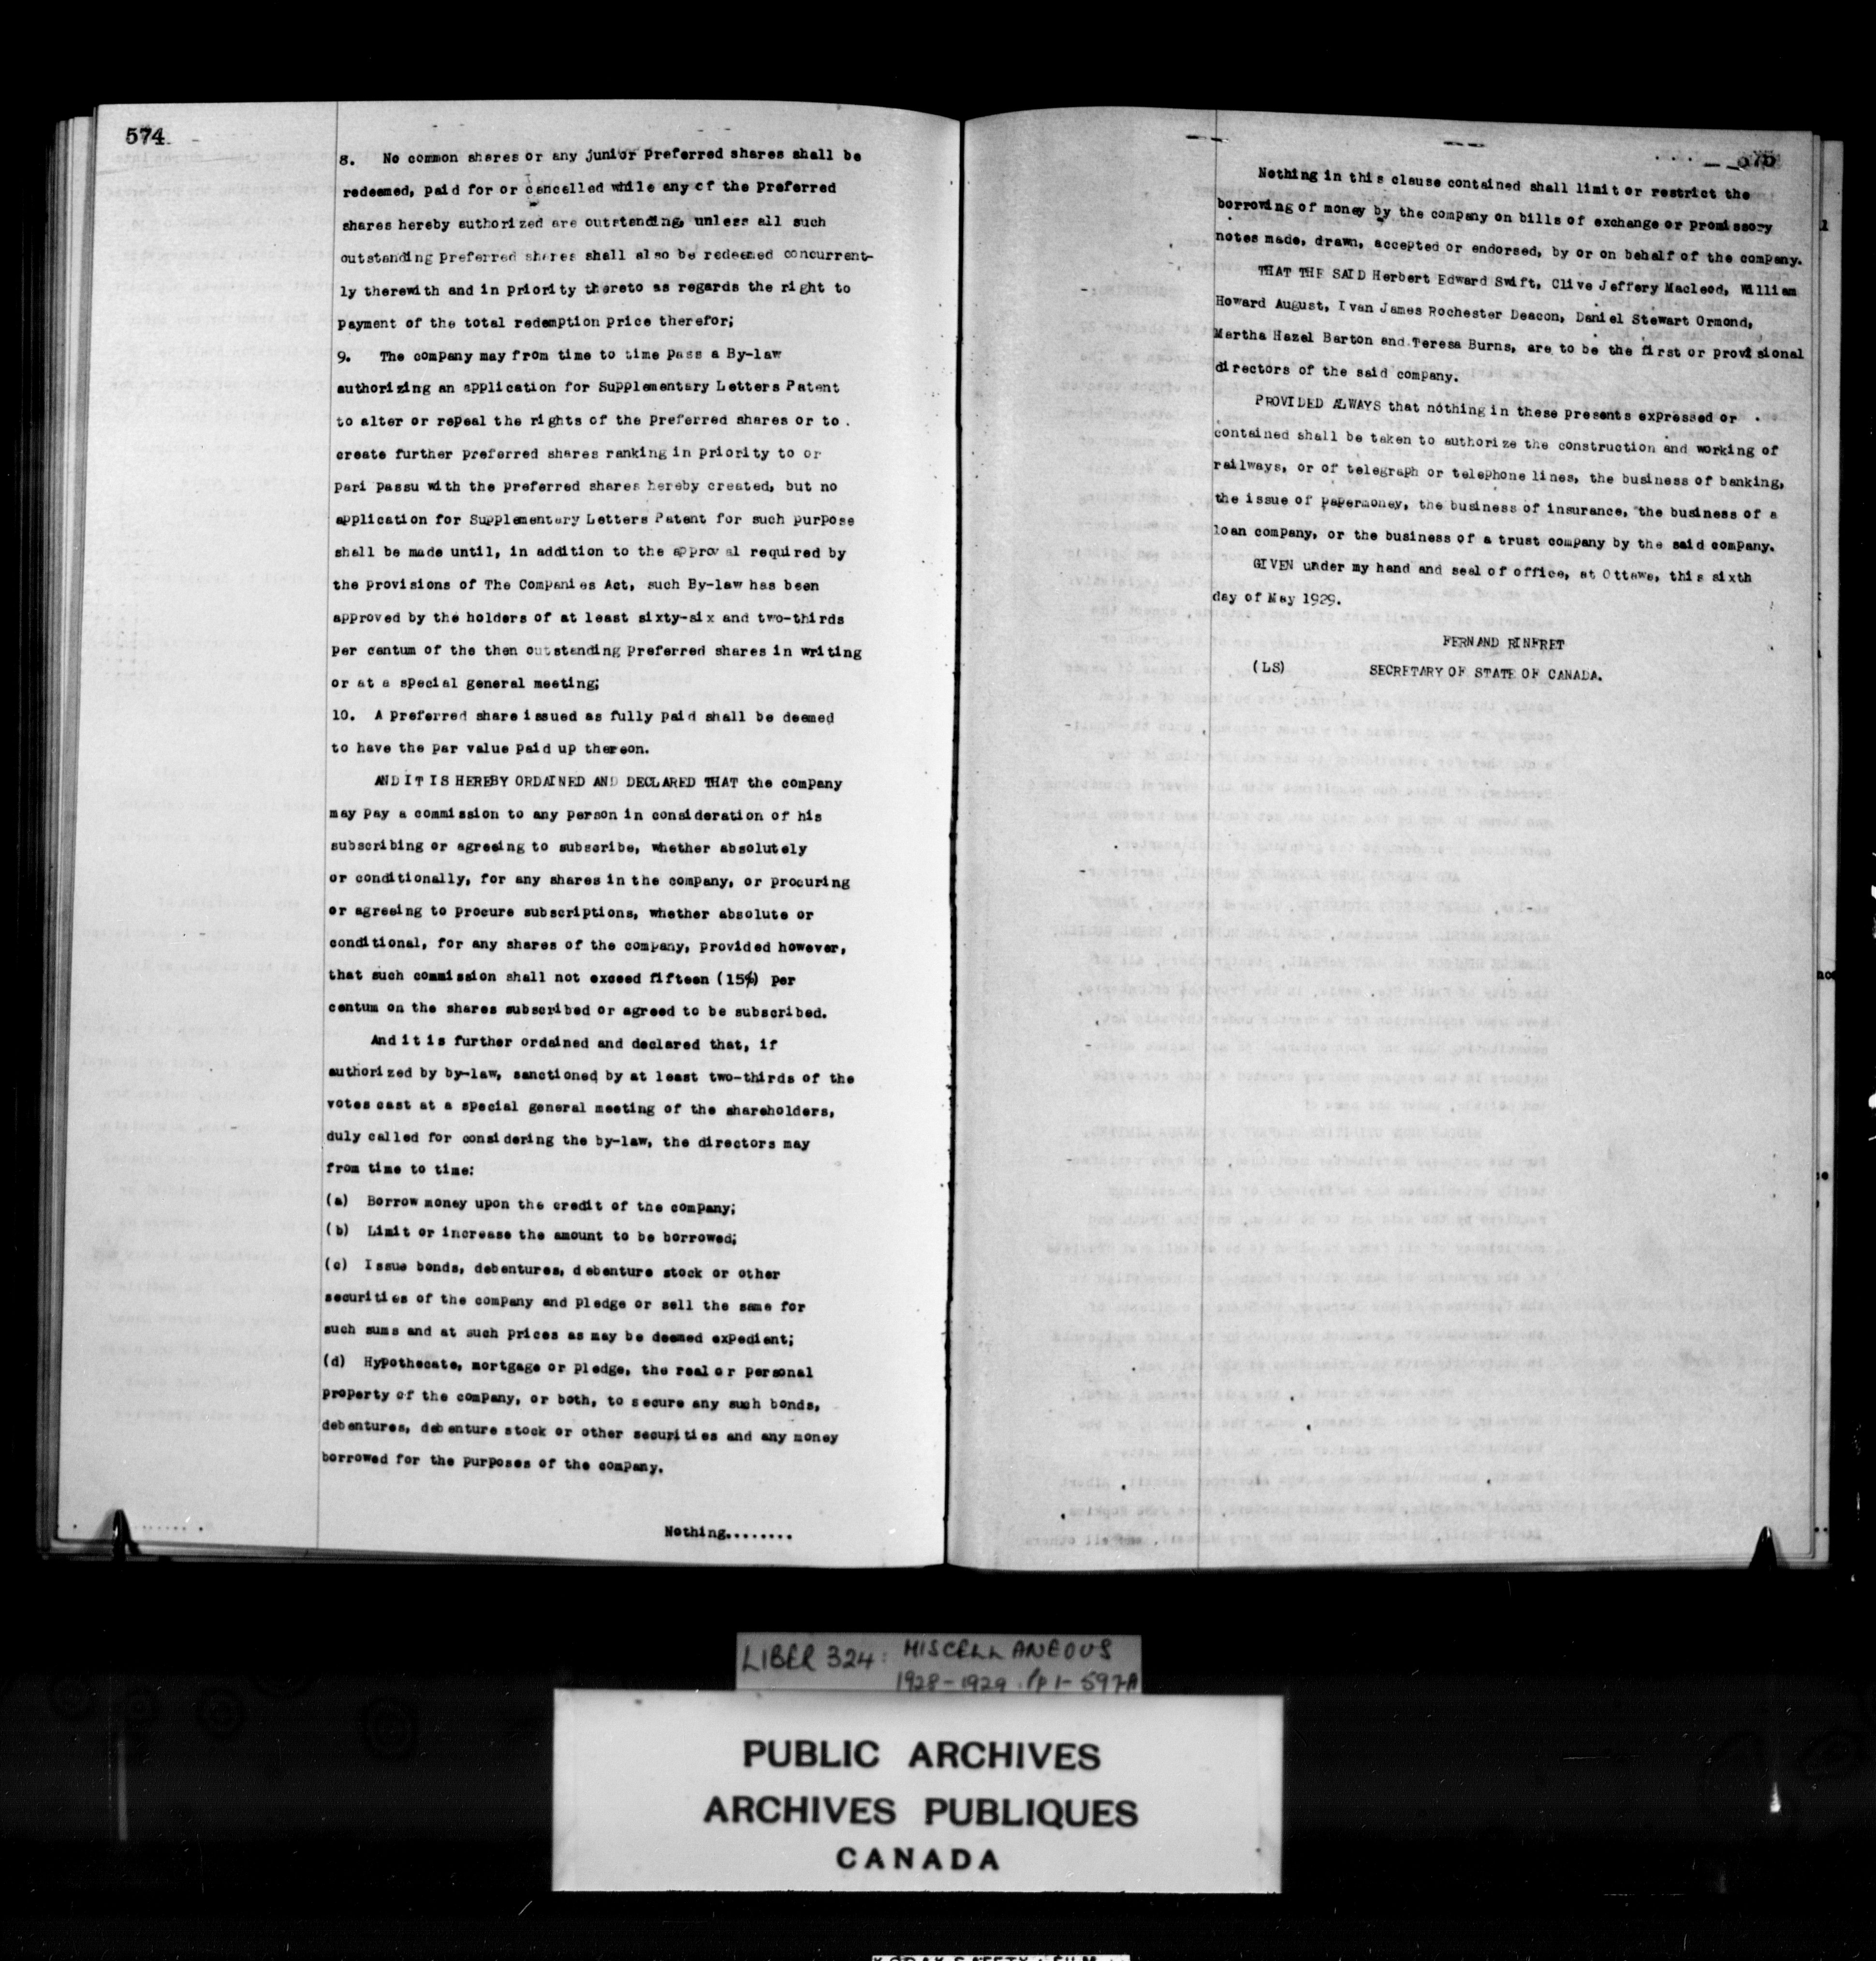 574
8. No common shares or any junior Preferred shares shall be
redeemed, paid for or cancelled while any of the Preferred
shares hereby authorized are outstanding, unless all such
outstanding preferred shares shall also be redeemed concurrent-
ly therewith and in priority thereto as regards the right to
payment of the total redemption price therefor;
9. The company may from time to time pass a By-law
authorizing an application for Supplementary Letters Patent
to alter or repeal the rights of the preferred shares or to
create further preferred shares ranking in priority to or
pari passu with the preferred shares hereby created, but no
application for Supplementary Letters Patent for such purpose
shall be made until, in addition to the approval required by
the provisions of The Companies Act, such By-law has been
approved by the holders of at least sixty-six and two-thirds
per centum of the then outstanding preferred shares in writing
or at a special general meeting;
10. A preferred share issued as fully paid shall be deemed
to have the par value paid up thereon.
AND IT IS HEREBY ORDAINED AND DECLARED THAT the company
may pay a commission to any person in consideration of his
subscribing or agreeing to subscribe, whether absolutely
or conditionally, for any shares in the company, or procuring
or agreeing to procure subscriptions, whether absolute or
conditional, for any shares of the company, provided however,
that such commission shall not exceed fifteen (15%) per
centum on the shares subscribed or agreed to be subscribed.
And it is further ordained and declared that, if
authorized by by-law, sanctioned by at least two-thirds of the
votes cast at a special general meeting of the shareholders,
duly called for considering the by-law, the directors may
from time to time:
(a) Borrow money upon the credit of the company;
(b) Limit or increase the amount to be borrowed;
(c) Issue bonds, debentures, debenture stock or other
securities of the company and pledge or sell the same for
such sums and at such prices as may be deemed expedient;
(d) Hypothecate, mortgage or pledge, the real or personal
property of the company, or both, to secure any such bonds,
debentures, debenture stock or other securities and any money
borrowed for the purposes of the company.
Nothing........
575
Nothing in this clause contained shall limit or restrict the
borrowing of money by the company on bills of exchange or promissory
notes made, drawn, accepted or endorsed, by or on behalf of the company.
THAT THE SAID Herbert Edward Swift, Clive Jeffery Macleod, William
Howard August, Ivan James Rochester Deacon, Daniel Stewart Ormond,
Martha Hazel Barton and Teresa Burns, are to be the first or provisional
directors of the said company.
PROVIDED ALWAYS that nothing in these presents expressed or
contained shall be taken to authorize the construction and working of
railways, or of telegraph or telephone lines, the business of banking,
the issue of papermoney, the business of insurance, the business of a
loan company, or the business of a trust company by the said company.
GIVEN under my hand and seal of office, at Ottawa, this sixth
day of May 1929.
FERNAND RINFRET
(LS) SECRETARY OF STATE OF CANADA.
LIBER 324: MISCELLANEOUS
1928-1929 pp 1-597A
PUBLIC ARCHIVES
ARCHIVES PUBLIQUES
CANADA